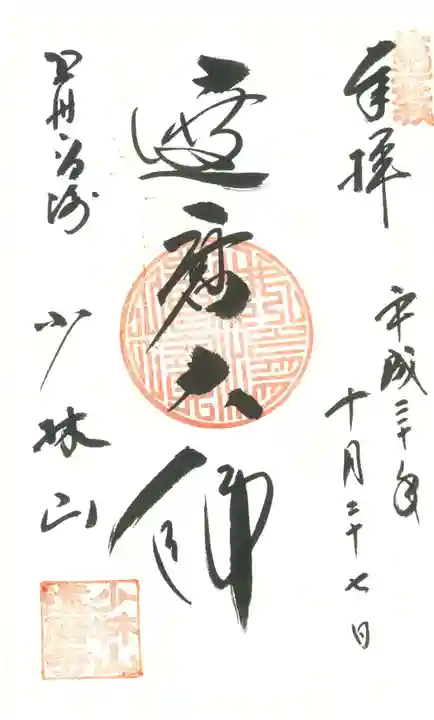 奉拝
平成三十年
十月二十七日
達磨大師
上州高崎
少林山
少林山
達磨寺